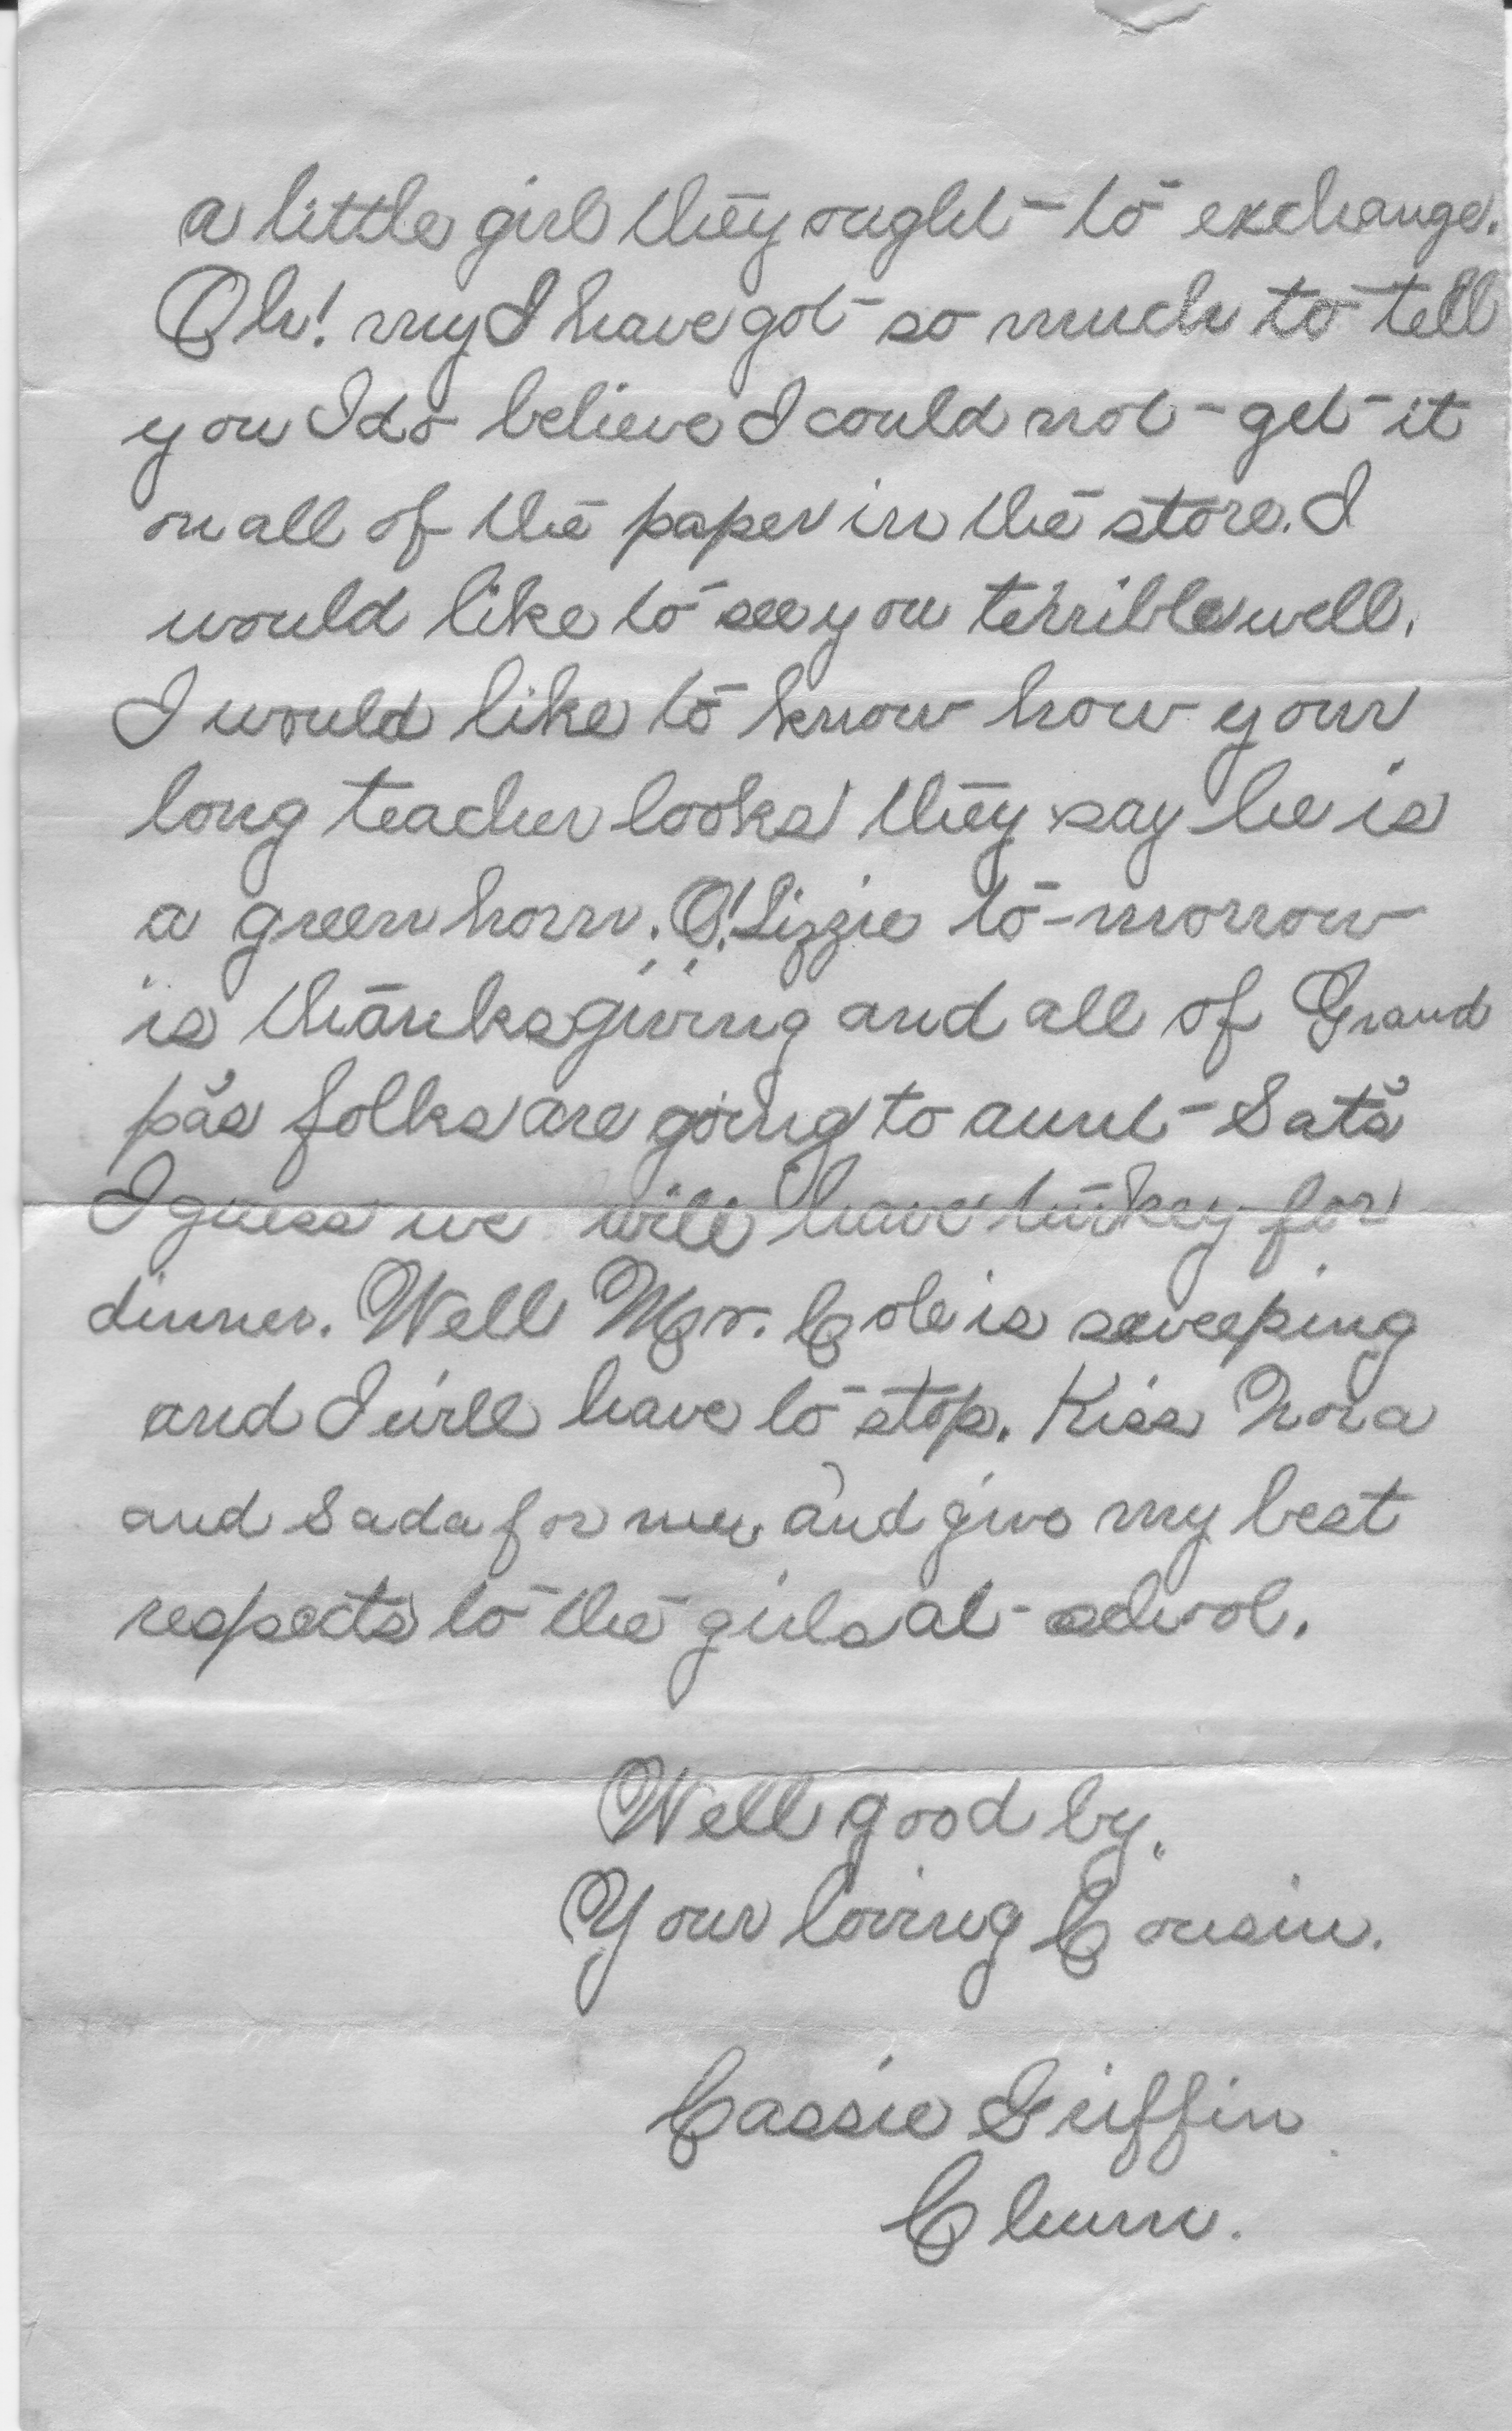 a little girl they ought to exchange.
Oh! my I have got so much to tell
you I do believe I could not get it
on all of the paper in the store. I
would like to see you terrible well.
I would like to know how your
long teacher looks they say he is
a green horn. O! Lizzie to-morrow
is thanksgiving and all of Grand
pa's folks are going to aunt Sat's
I guess we will have turkey for
dinner. Well Mr. Cole is sweeping
and I will have to stop. Kiss Nora
and Sada for me, and give my best
respects to the girls at school.
Well good by.
Your loving Cousin.
Cassie Griffin
Chum.